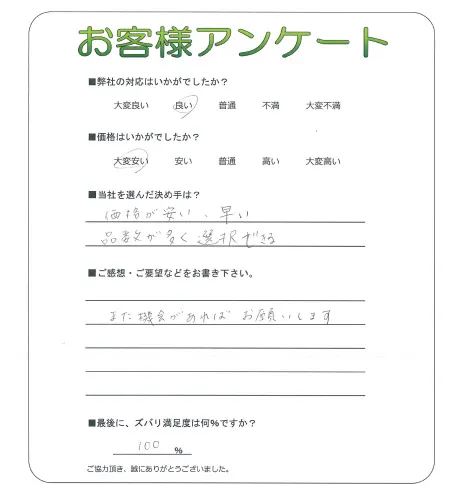 お客様アンケート
■弊社の対応はいかがでしたか？
大変良い 良い 普通 不満 大変不満
■価格はいかがでしたか？
大変安い 安い 普通 高い 大変高い
■当社を選んだ決め手は？
価格が安い、早い
品数が多く選択できる
■ご感想・ご要望などをお書き下さい。
また機会があればお願いします
■最後に、ズバリ満足度は何%ですか？
100 %
ご協力頂き、誠にありがとうございました。